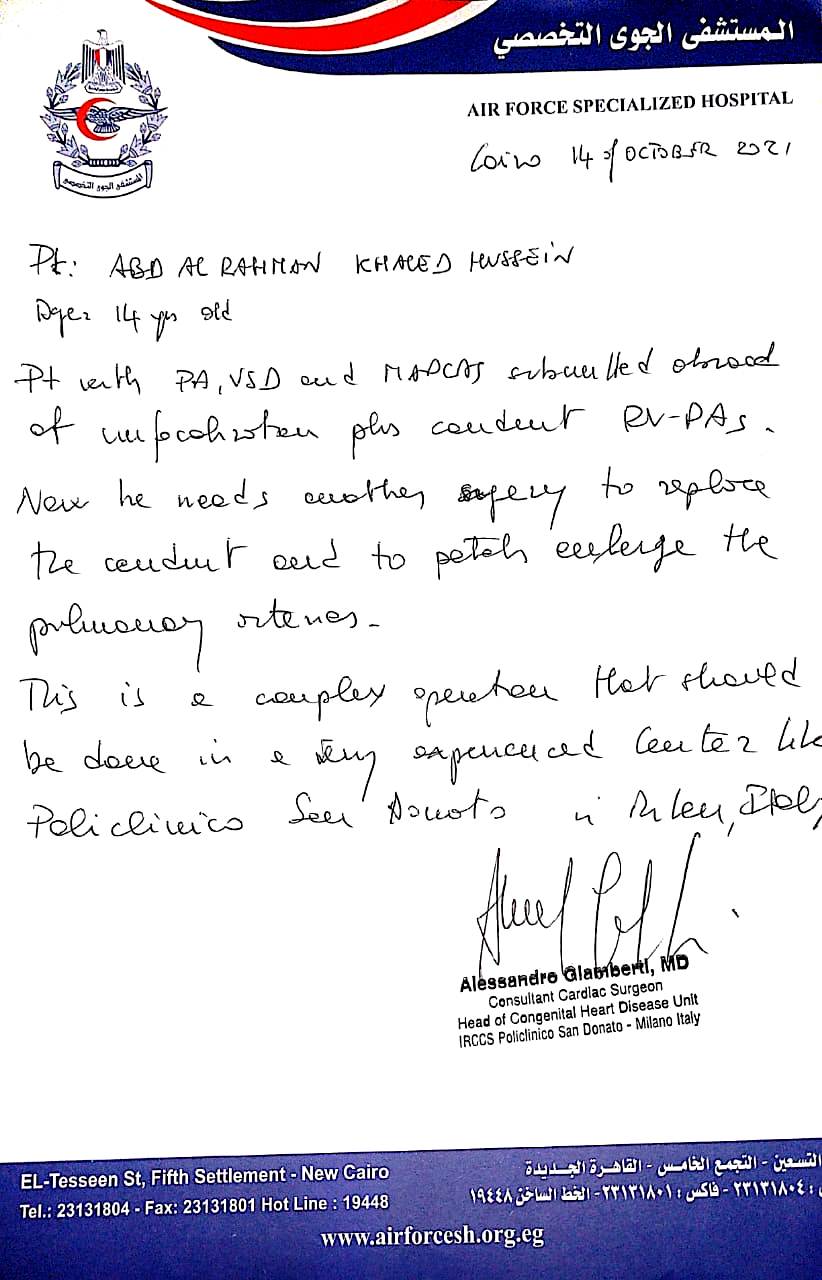 المستشفى الجوى التخصصي
AIR FORCE SPECIALIZED HOSPITAL
المستشفى الجوى التخصصي
Cairo 14 of OCTOBER 2021
Pt: ABD AL RAHMAN KHALED HUSSEIN
Age: 14 yrs old
Pt with PA, VSD and MAPCAS submitted abroad
of unifocalization plus conduit RV-PAs.
Now he needs another surgery to replace
the conduit and to patch enlarge the
pulmonary arteries.
This is a complex operation that should
be done in a very experienced Center like
Policlinico San Donato in Milan, Italy
Alessandro Giamberti, MD
Consultant Cardiac Surgeon
Head of Congenital Heart Disease Unit
IRCCS Policlinico San Donato - Milano Italy
EL-Tesseen St, Fifth Settlement - New Cairo
التسعين - التجمع الخامس - القاهرة الجديدة
Tel.: 23131804 - Fax: 23131801 Hot Line : 19448
: ٢٣١٣١٨٠٤ - فاكس : ٢٣١٣١٨٠١ - الخط الساخن ١٩٤٤٨
www.airforcesh.org.eg